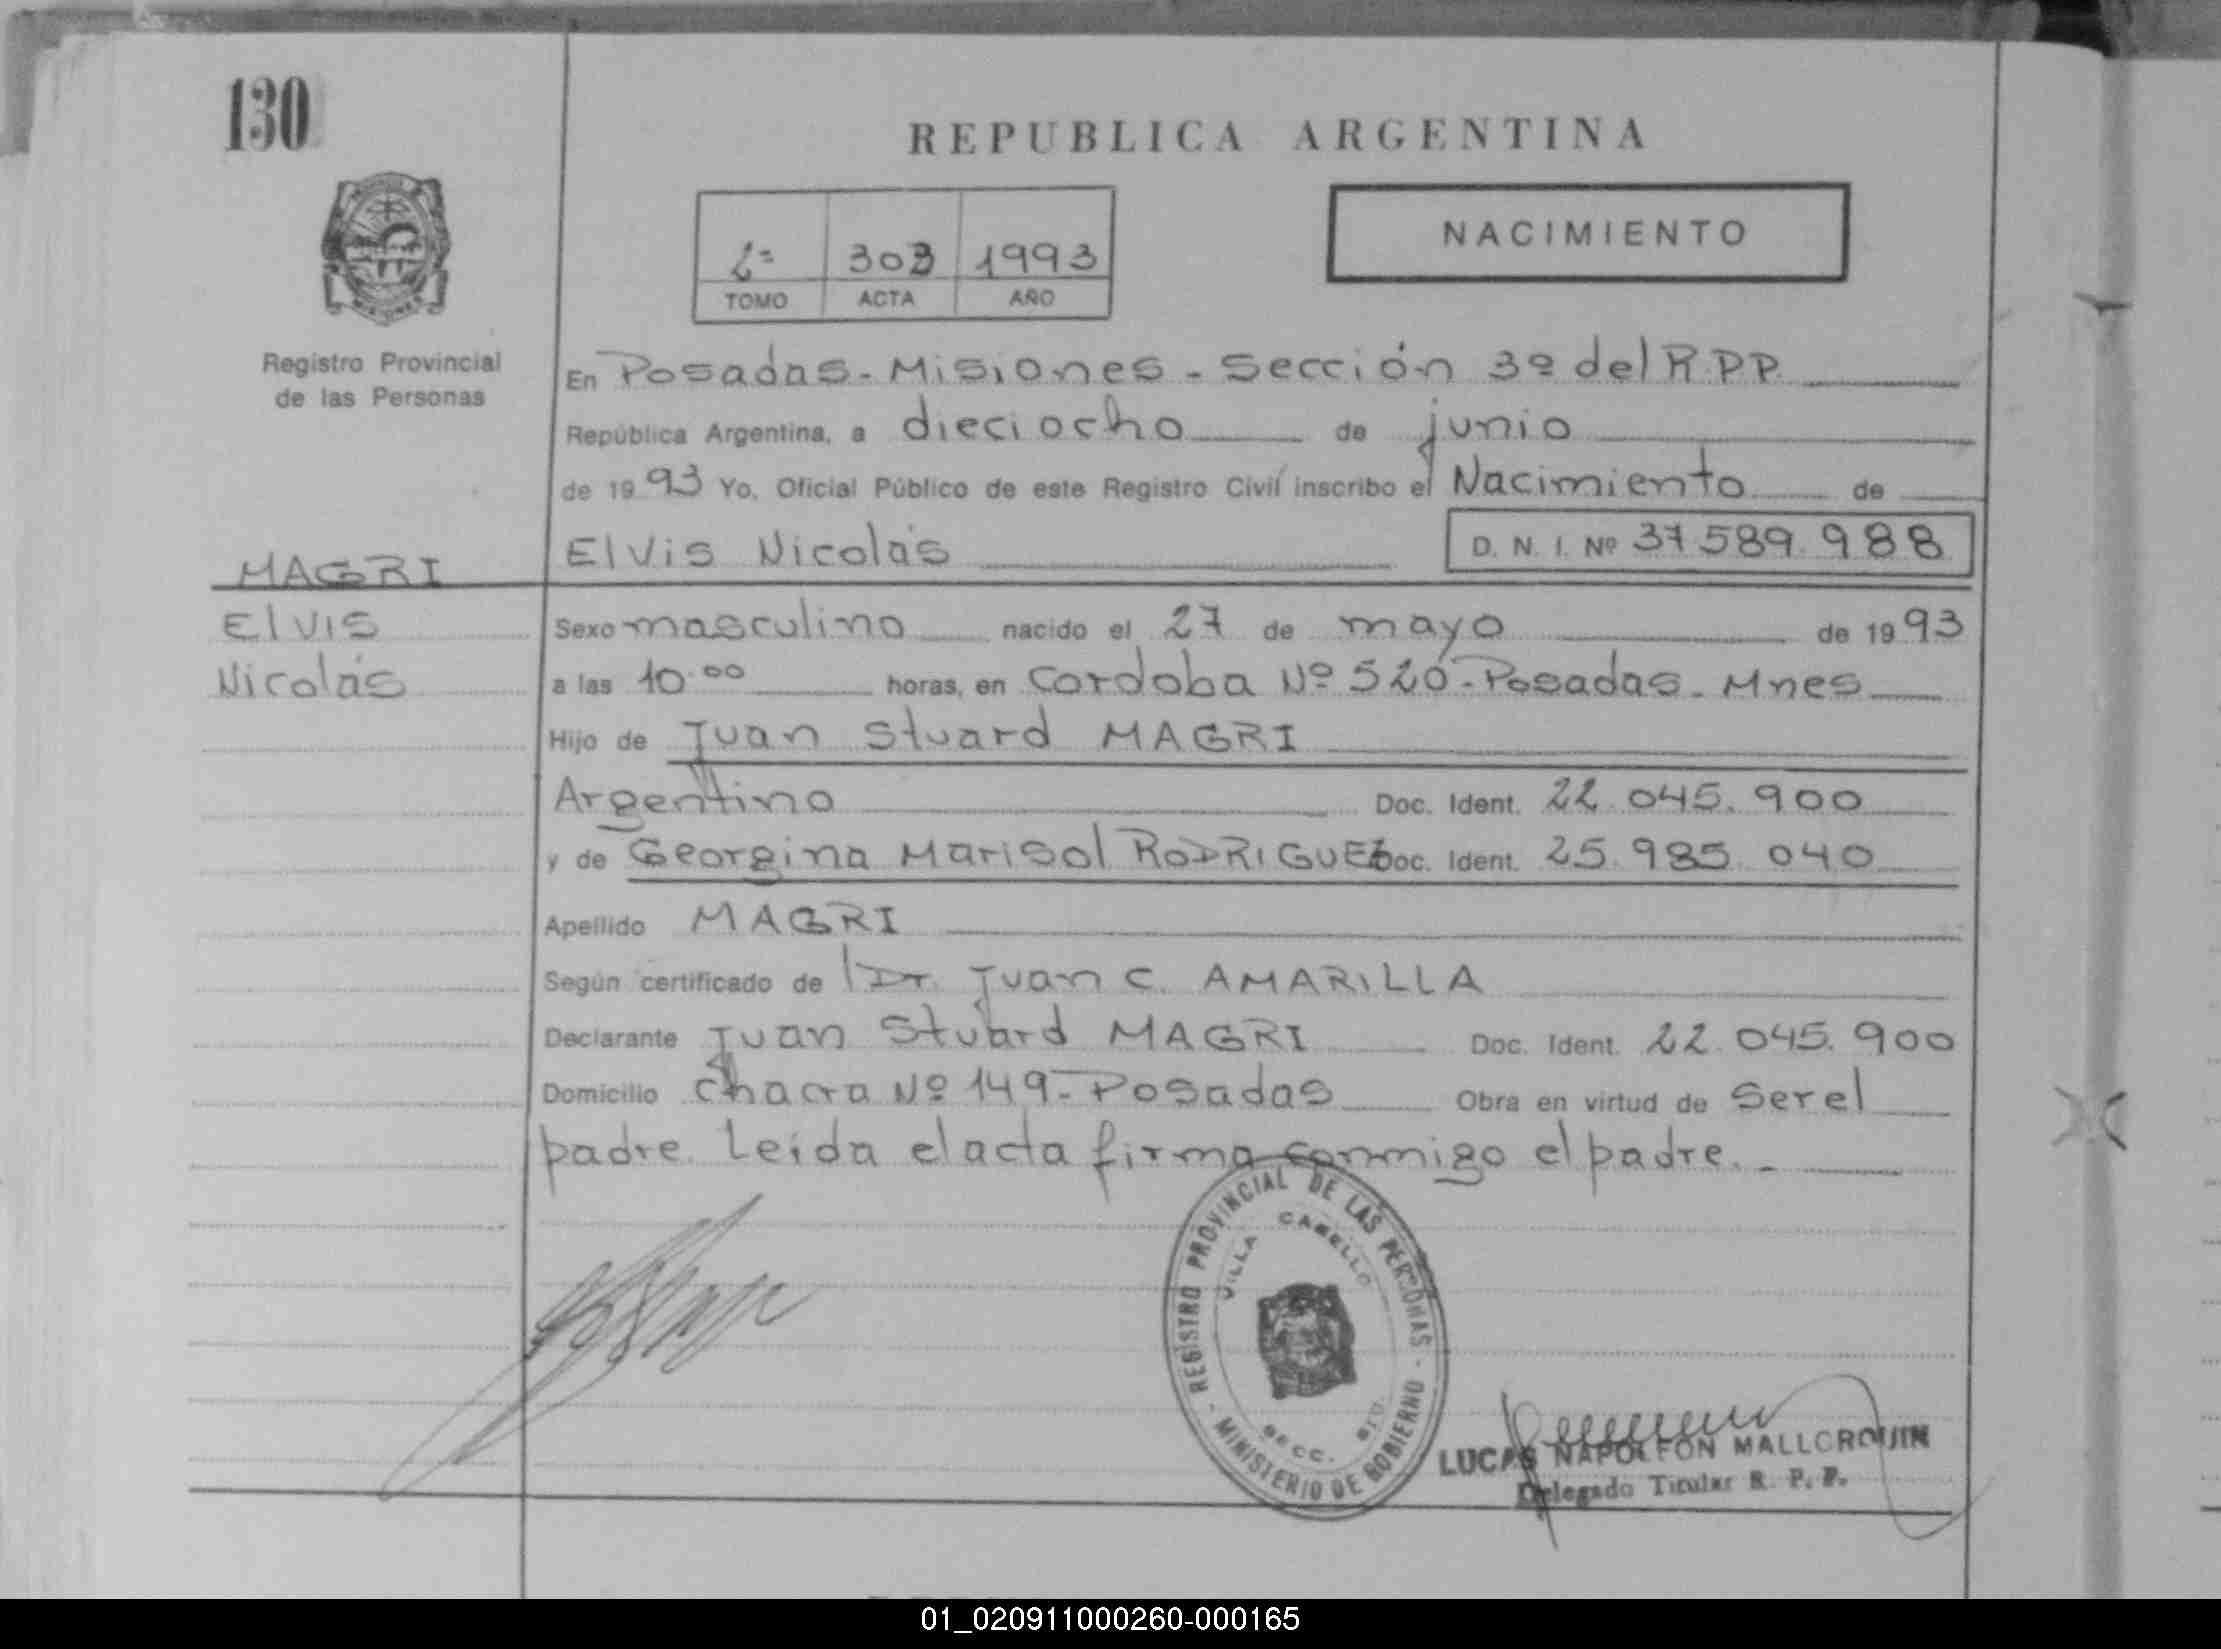 130
REPUBLICA ARGENTINA
NACIMIENTO
303 1993
TOMO ACTA AÑO
Registro Provincial
de las Personas
En Posadas - Misiones - Sección 3º del R.P.P.
República Argentina, a dieciocho de junio
de 1993 Yo, Oficial Público de este Registro Civil inscribo el Nacimiento de
Elvis Nicolás D. N. I. Nº 37.589.988
MAGRI
Elvis
Nicolás
Sexo masculino nacido el 27 de mayo de 1993
a las 10.00 horas, en Cordoba Nº 520 - Posadas - Mnes
Hijo de Juan Stuard MAGRI
Argentino Doc. Ident. 22.045.900
y de Georgina Marisol RODRIGUEZ Doc. Ident. 25.985.040
Apellido MAGRI
Según certificado de Dr. Juan C. AMARILLA
Declarante Juan Stuard MAGRI Doc. Ident. 22.045.900
Domicilio Chacra Nº 149 - Posadas Obra en virtud de Ser el
padre. Leida el acta firma conmigo el padre. -
REGISTRO PROVINCIAL DE LAS PERSONAS - MINISTERIO DE GOBIERNO -
VILLA CABELLO
SECC.
LUCAS NAPOLEON MALLORQUIN
Delegado Titular R. P. P.
01_020911000260-000165